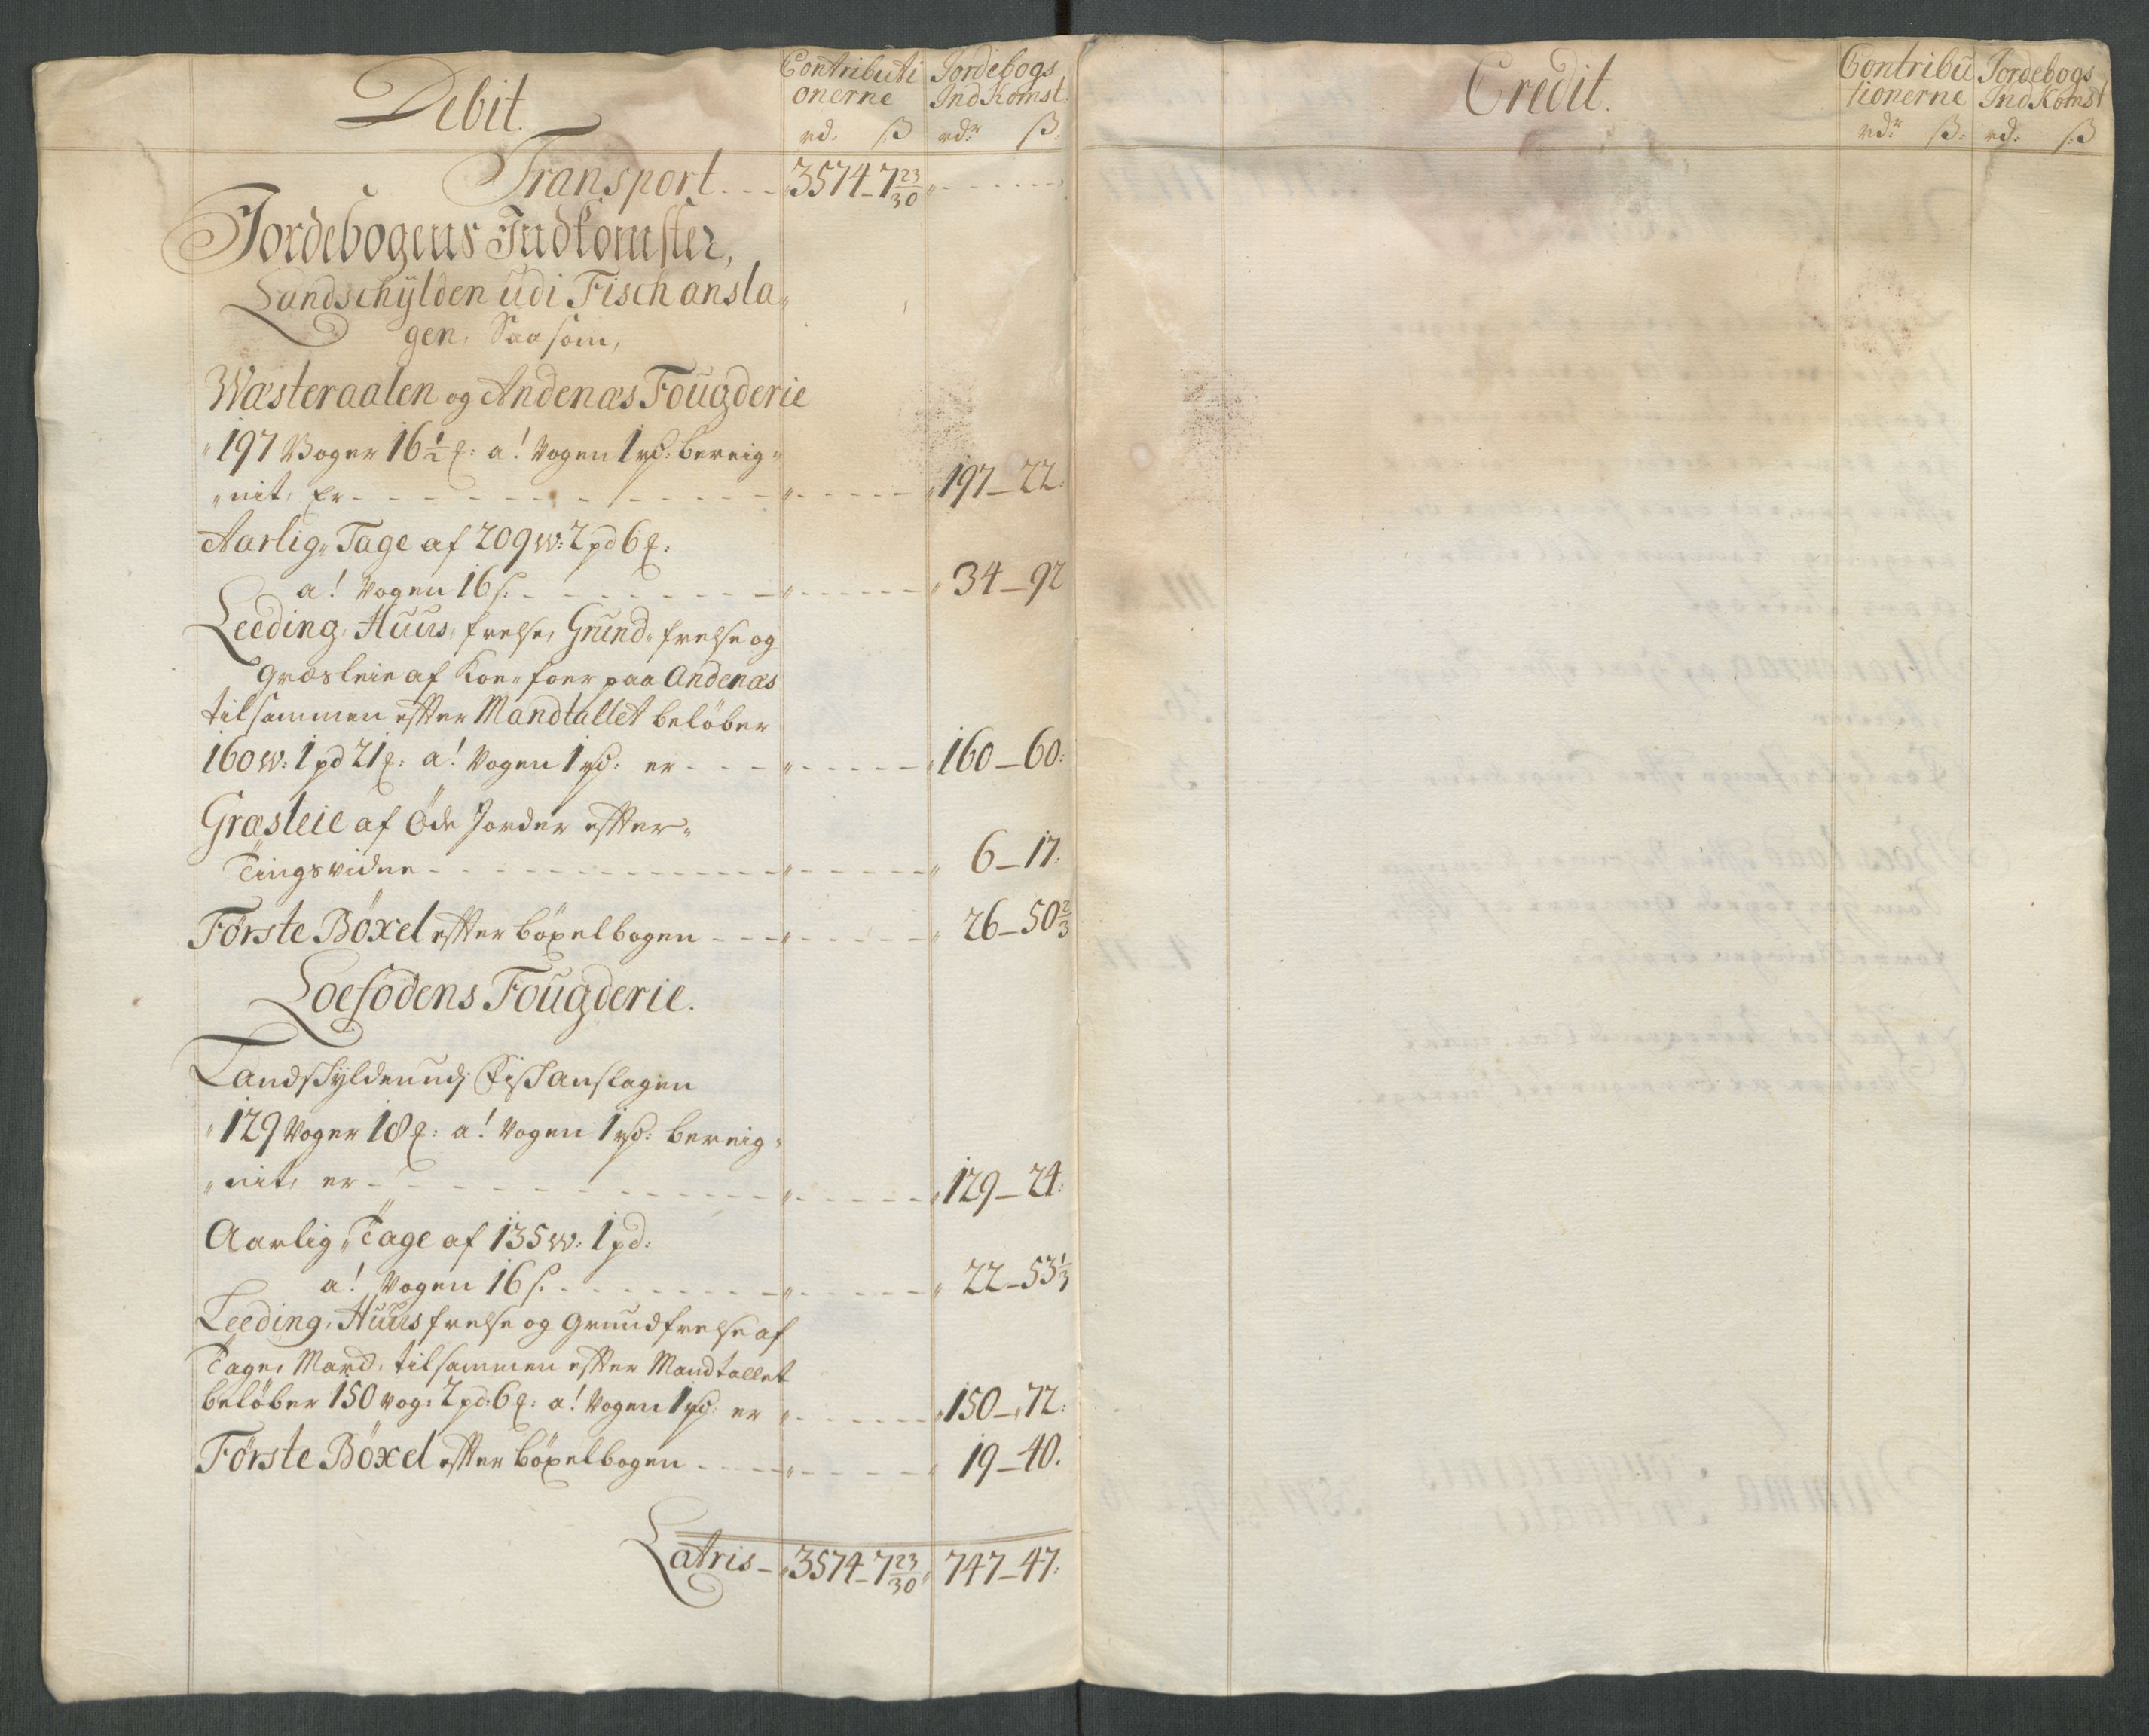 Debit.
Contributi
onerne
rd: ß
Jordebogs
IndKomst.
rdr ß:
Transport - - - 3574 - 7 23/30 " - - - - - -
Jordebogens Indkomster,
Landschÿlden udi Fisch ansla„
gen, Saasom,
Wæsteraalen og Andenæs Fougderie
" 197 Voger 16 1/2 ℔: a! Vogen 1 rd: bereig„
„nit, Er - - - - - " - - - - - " 197 - 22:
Aarlig„ Tage af 209 w: 2 pd 6 ℔:
a! Vogen 16 ß. - - - - - " - - - - - " 34 - 92
Leeding, Huus„frelse, Grund„frelse og
Græsleie af Koe„foer paa Andenæs
tilsammen effter Mandtallet beløber
160 w: 1 pd 21 ℔: a! Vogen 1 rd: er - - - " - - - - - " 160 - 60:
Græsleie af Øde Jorder effter„
Tingsvidne - - - - - " - - - - - " 6 - 17:
Første Böxel effter böxelbogen - - - " - - - - - " 26 - 50 2/3
Loefodens Fougderie.
Landschylden udj Fischanslagen
" 129 Voger 18 ℔: a! Vogen 1 rd: bereig„
„nit, er - - - - - " - - - - - " 129 - 24:
Aarlig„ Tage af 135 w: 1 pd:
a! Vogen 16 ß. - - - - - " - - - - - " 22 - 53 1/3
Leeding, Huusfrelse og Grundfrelse af
Tage, Mard, tilsammen effter Mandtallet
beløber 150 Vog: 2 pd: 6 ℔: a! Vogen 1 rd: er " - - - - - " 150 - 72:
Første Böxel effter böxelbogen - - - - " - - - - - " 19 - 40.
Latris - 3574 - 7 23/30 " 747 - 47:
Credit.
Contribu
tionerne
rdr ß:
Jordebogs
IndKomst
rd: ß